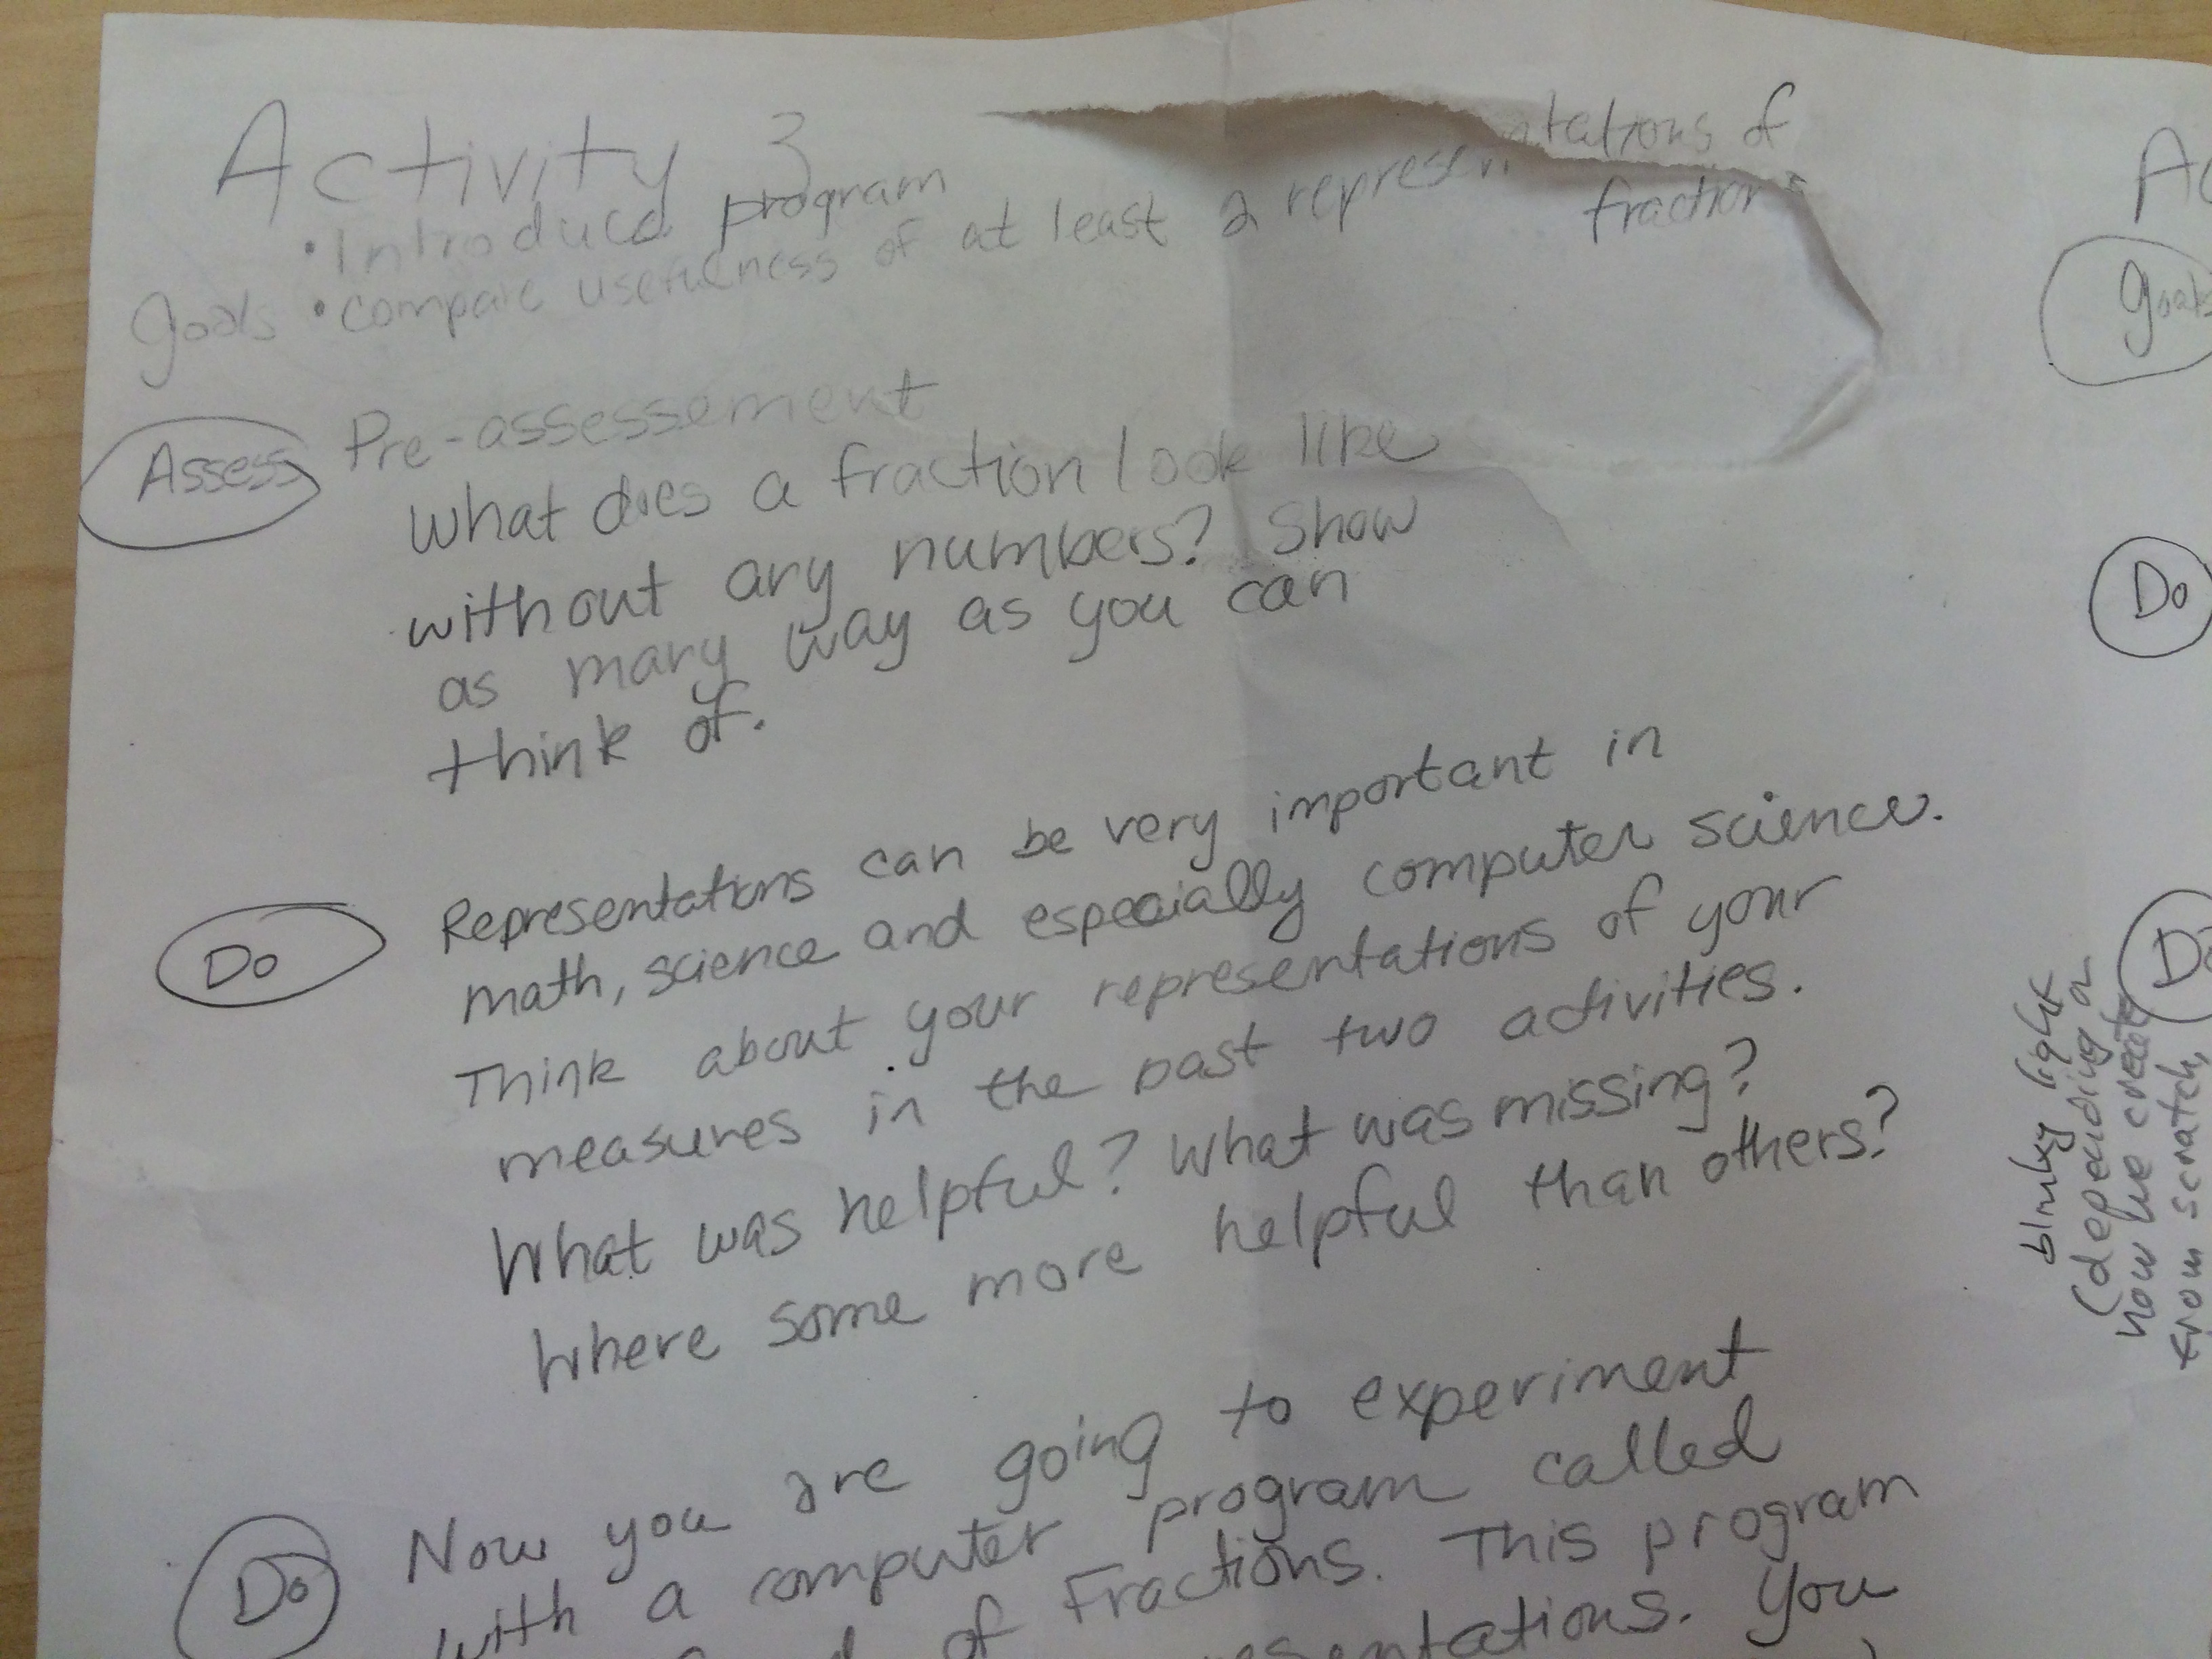 Activity 3
• Introduce program
Goals • compare usefulness of at least 2 representations of
fractions
Assess Pre-assessement
What does a fraction look like
without any numbers? Show
as many way as you can
think of.
Do Representations can be very important in
math, science and especially computer science.
Think about your representations of your
measures in the past two activities.
What was helpful? What was missing?
Where some more helpful than others?
Do Now you are going to experiment
with a computer program called
of Fractions. This program
You
Goals
Do
Do
blinky light
(depending on
how we create
from scratch,